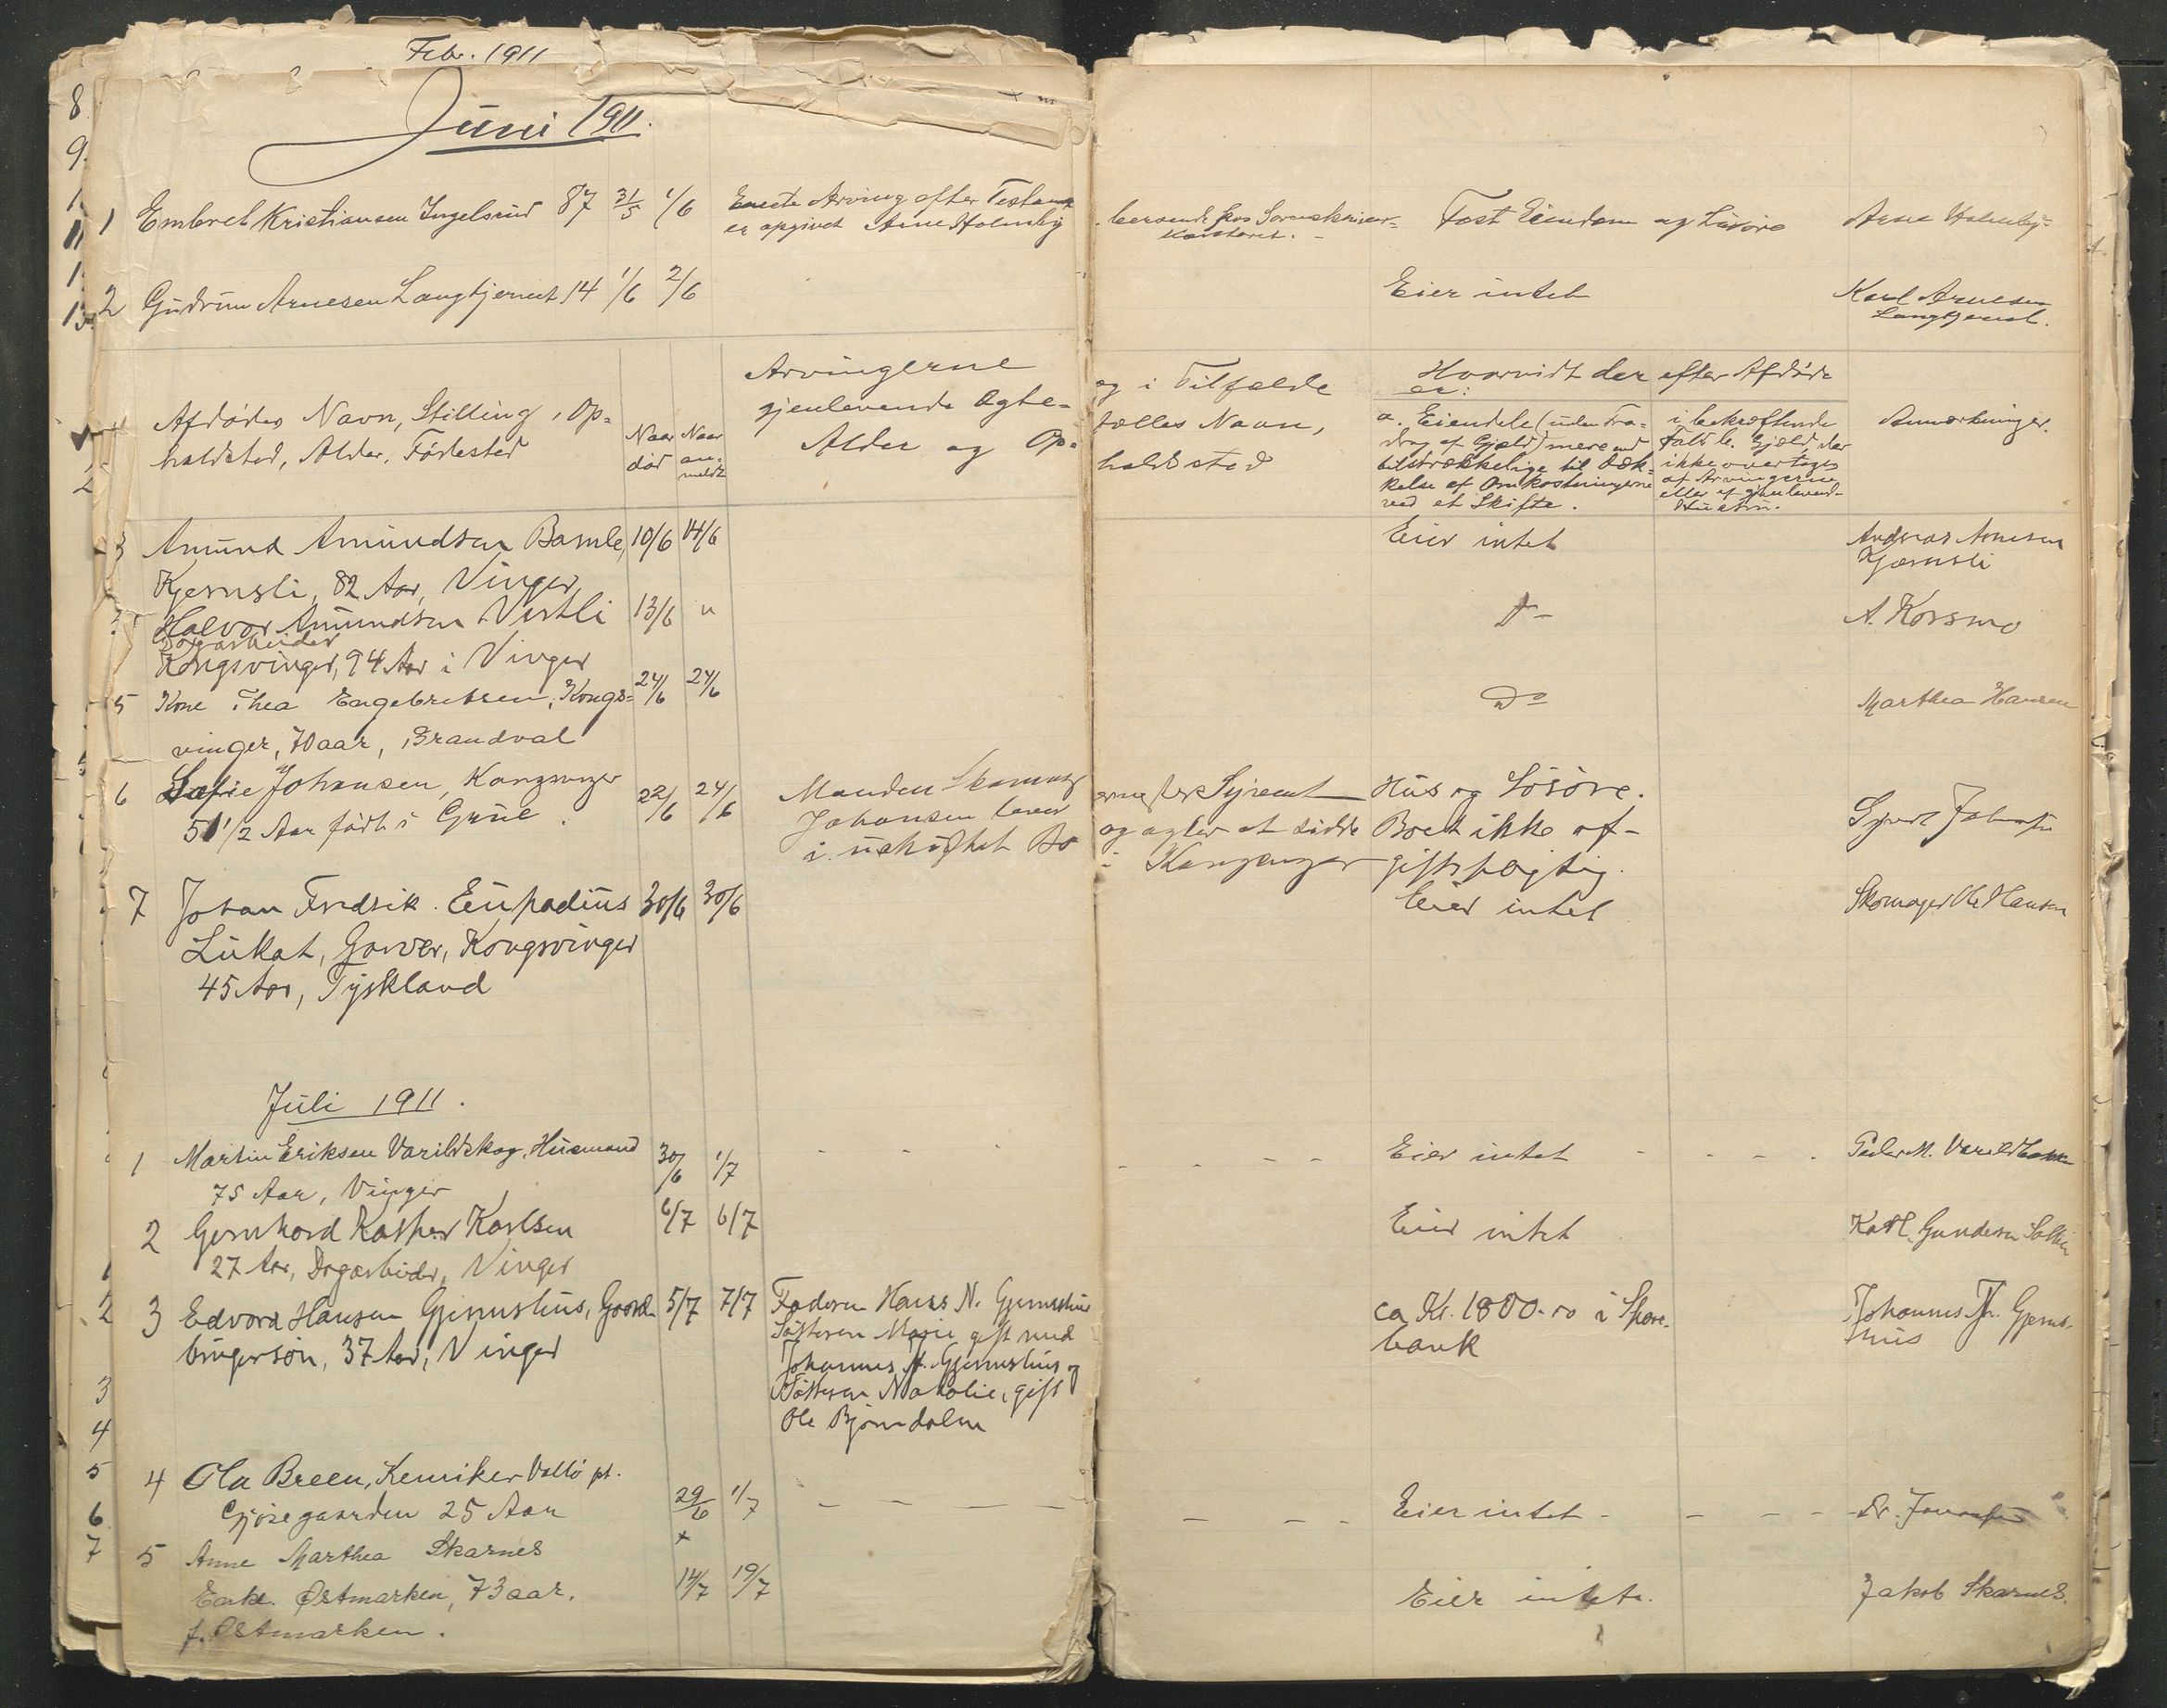 Febr. 1911
Juni 1911.
1 Embret Kristiansen Ingelsrud 87 31/5 1/6 Eneste Arving efter Testament beroende hos Sorenskriver= Fast Eiendom og Løsøre Arne Holmby
er opgivet Arne Holmby Kontoret.
2 Gudrun Arnesen Langtjernet 14 1/6 2/6 Eier intet Karl Arnesen
Langtjernet.
Afdødes Navn, Stilling, Op=
holdsted, Alder, Fødested
Naar død
Naar an-
meldt
Arvingerne og i Tilfælde
gjenlevende Ægte- fælles Navn,
Alder og Op= holdssted
Hvorvidt der efter Afdøde
er:
a. Eiendele (uden Fra=
drag af Gjæld) mere end
tilstrækkelige til Dæk=
kelse af Omkostningerne
ved et Skifte.
i bekræftende
Fald b. Gjæld, der
ikke overtages
af Arvingerne
eller af gjenlevende
Hustru.
Anmærkninger.
3 Amund Amundsen Bamle, 10/6 14/6 Eier intet Andreas Arnesen
Kjernsli, 82 Aar, Vinger Kjærnsli
Halvor Amundsen Vestli 13/6 " Do A. Korsmo
Dagarbeider
Kongsvinger, 94 Aar i Vinger
5 Kone Thea Engebretsen, Kongs= 24/6 24/6 Do Marthea Hansen
vinger, 70 aar, Brandval
6 Sofie Johansen, Kongsvinger 22/6 24/6 Manden Skomag ermester Sjvert Hus og Løsøre. Sjvert Johansen
51 1/2 Aar født i Grue. Johansen lever og agter at sidde Boet ikke af-
i uskiftet Bo i Kongsvinger giftspligtig.
7 Johan Fredrik Eupadius 30/6 30/6 Eier intet Skomager Ole Hansen
Lukat, Garver, Kongsvinger
45 Aar, Tyskland
Juli 1911.
1 Martin Eriksen Varildskog, Husmand 30/6 1/7 Eier intet Peder M. Varildskog
75 Aar, Vinger
2 Gernhard Kasper Karlsen 6/7 6/7 Eier intet Karl Gundersen
27 Aar, Dagarbeider, Vinger
3 Edvard Hansen Gjemshus, Gaard- 5/7 7/7 Faderen Hans N. Gjemshus ca Kr. 1800.00 i Spare- Johannes Jh. Gjems-
brugersøn, 37 Aar, Vinger Søsteren Marie gift med bank hus
Johannes Jh. Gjemshus og
Søsteren Natalie, gift
Ole Bjørndalen
4 Ola Breen, Kemiker Vallø pt.
Gjøsegaarden 25 Aar 29/6 1/7 Eier intet Dr.
5 Anne Marthea Skarnes +
Enke. Østmarken, 73 aar. 14/7 19/7 Eier intet. Jakob Skarnes.
f. Østmarken.